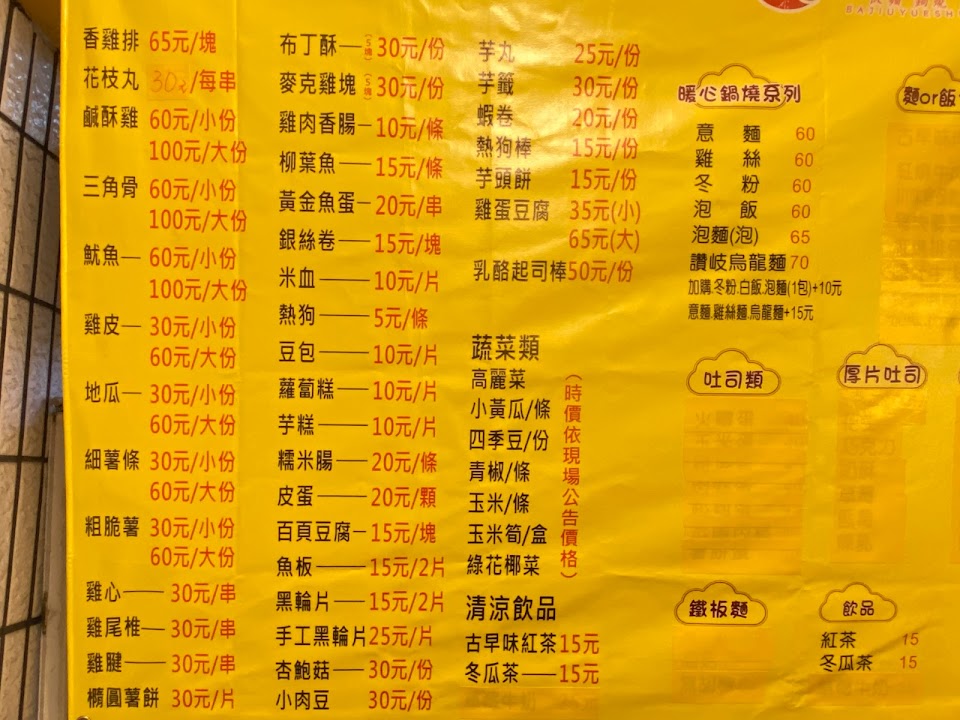 香雞排 65元/塊
花枝丸 30元/每串
鹹酥雞 60元/小份
100元/大份
三角骨 60元/小份
100元/大份
魷魚—60元/小份
100元/大份
雞皮—30元/小份
60元/大份
地瓜—30元/小份
60元/大份
細薯條 30元/小份
60元/大份
粗脆薯 30元/小份
60元/大份
雞心——30元/串
雞尾椎—30元/串
雞腱——30元/串
橢圓薯餅 30元/片
布丁酥—(5塊)30元/份
麥克雞塊(5塊)30元/份
雞肉香腸—10元/條
柳葉魚——15元/條
黃金魚蛋—20元/串
銀絲卷—15元/塊
米血——10元/片
熱狗——5元/條
豆包——10元/片
蘿蔔糕——10元/片
芋糕——10元/片
糯米腸——20元/條
皮蛋——20元/顆
百頁豆腐—15元/塊
魚板——15元/2片
黑輪片——15元/2片
手工黑輪片25元/片
杏鮑菇——30元/份
小肉豆 30元/份
芋丸 25元/份
芋籤 30元/份
蝦卷 20元/份
熱狗棒 15元/份
芋頭餅 15元/份
雞蛋豆腐 35元(小)
65元(大)
乳酪起司棒50元/份
蔬菜類
高麗菜
小黃瓜/條
四季豆/份
青椒/條
玉米/條
玉米筍/盒
綠花椰菜
(時價依現場公告價格)
清涼飲品
古早味紅茶15元
冬瓜茶——15元
暖心鍋燒系列
意麵 60
雞絲 60
冬粉 60
泡飯 60
泡麵(泡) 65
讚岐烏龍麵70
加購.冬粉.白飯.泡麵(1包)+10元
意麵.雞絲麵.烏龍麵+15元
吐司類
鐵板麵
麵or飯
厚片吐司
飲品
紅茶 15
冬瓜茶 15